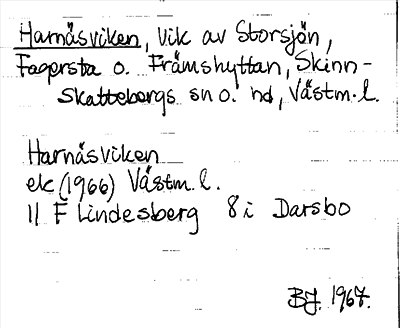 Harnäsviken, vik av Storsjön,
Fagersta o. Främshyttan, Skinn-
skattebergs sn o. hd, Västm. l.
Harnäsviken
ek (1966) Västm. l.
11 F Lindesberg 8 i Darsbo
BJ. 1967.